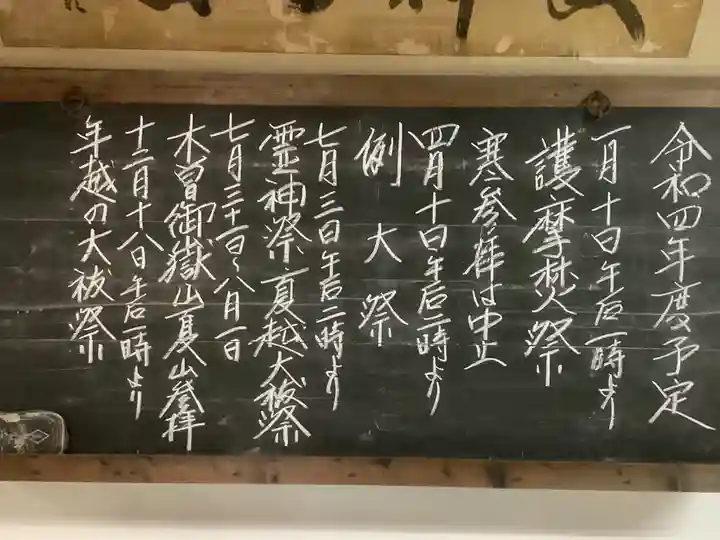 令和四年度予定
一月十日午后一時より
護摩焚祭
寒参拝は中止
四月十日午后一時より
例大祭
七月三日午后二時より
霊神祭夏越大祓祭
七月三十一日〜八月一日
木曽御嶽山夏山登拝
十二月十八日午后一時より
年越の大祓祭